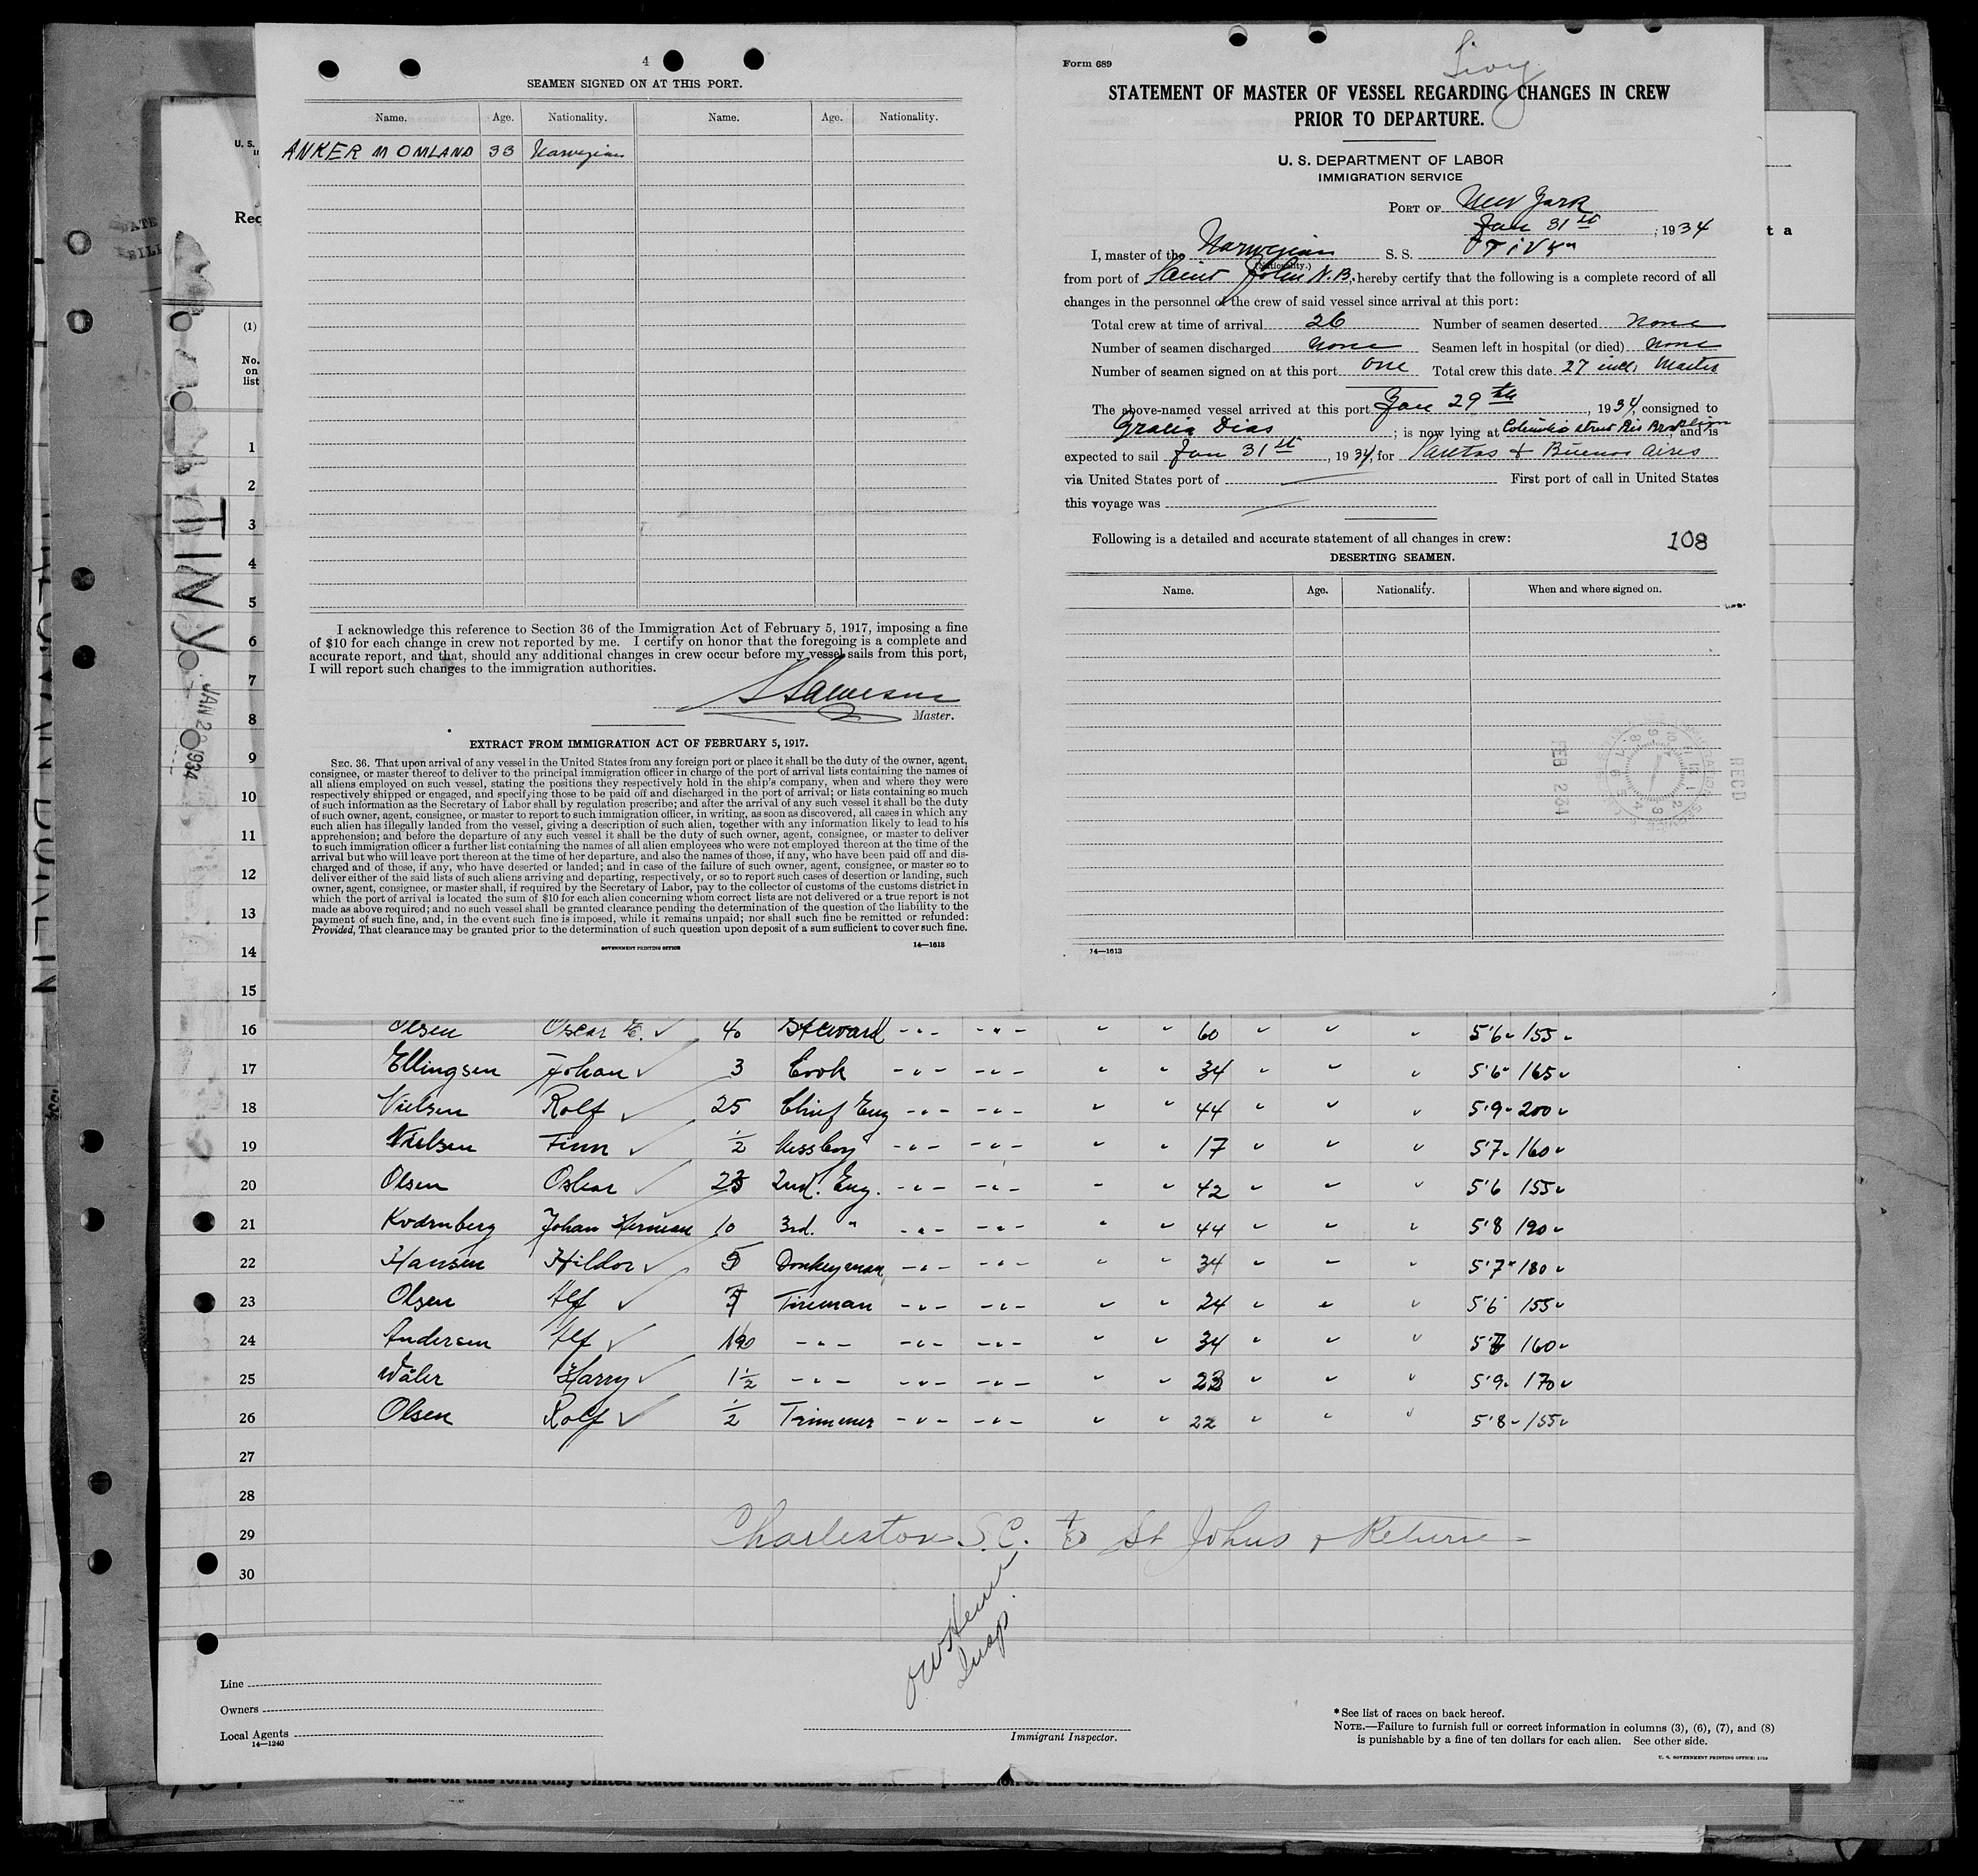 4
SEAMEN SIGNED ON AT THIS PORT.
Name. Age. Nationality. Name. Age. Nationality.
ANKER M OMLAND 33 Norwegian
I acknowledge this reference to Section 36 of the Immigration Act of February 5, 1917, imposing a fine
of $10 for each change in crew not reported by me. I certify on honor that the foregoing is a complete and
accurate report, and that, should any additional changes in crew occur before my vessel sails from this port,
I will report such changes to the immigration authorities.
Master.
EXTRACT FROM IMMIGRATION ACT OF FEBRUARY 5, 1917.
SEC. 36. That upon arrival of any vessel in the United States from any foreign port or place it shall be the duty of the owner, agent,
consignee, or master thereof to deliver to the principal immigration officer in charge of the port of arrival lists containing the names of
all aliens employed on such vessel, stating the positions they respectively hold in the ship's company, when and where they were
respectively shipped or engaged, and specifying those to be paid off and discharged in the port of arrival; or lists containing so much
of such information as the Secretary of Labor shall by regulation prescribe; and after the arrival of any such vessel it shall be the duty
of such owner, agent, consignee, or master to report to such immigration officer, in writing, as soon as discovered, all cases in which any
such alien has illegally landed from the vessel, giving a description of such alien, together with any information likely to lead to his
apprehension; and before the departure of any such vessel it shall be the duty of such owner, agent, consignee, or master to deliver
to such immigration officer a further list containing the names of all alien employees who were not employed thereon at the time of the
arrival but who will leave port thereon at the time of her departure, and also the names of those, if any, who have been paid off and dis-
charged and of those, if any, who have deserted or landed; and in case of the failure of such owner, agent, consignee, or master so to
deliver either of the said lists of such aliens arriving and departing, respectively, or so to report such cases of desertion or landing, such
owner, agent, consignee, or master shall, if required by the Secretary of Labor, pay to the collector of customs of the customs district in
which the port of arrival is located the sum of $10 for each alien concerning whom correct lists are not delivered or a true report is not
made as above required; and no such vessel shall be granted clearance pending the determination of the question of the liability to the
payment of such fine, and, in the event such fine is imposed, while it remains unpaid; nor shall such fine be remitted or refunded:
Provided, That clearance may be granted prior to the determination of such question upon deposit of a sum sufficient to cover such fine.
GOVERNMENT PRINTING OFFICE 14—1613
Form 689
STATEMENT OF MASTER OF VESSEL REGARDING CHANGES IN CREW
PRIOR TO DEPARTURE.
U. S. DEPARTMENT OF LABOR
IMMIGRATION SERVICE
PORT OF New York
Jan 31st, 1934
I, master of the Norwegian S. S.
(Nationality.)
from port of Saint John N.B., hereby certify that the following is a complete record of all
changes in the personnel of the crew of said vessel since arrival at this port:
Total crew at time of arrival 26 Number of seamen deserted none
Number of seamen discharged none Seamen left in hospital (or died) none
Number of seamen signed on at this port one Total crew this date 27 incl. Master
The above-named vessel arrived at this port Jan 29th, 1934, consigned to
Gracia Dias; is now lying at Columbia street Brooklyn, and is
expected to sail Jan 31st, 1934, for Santos & Buenos Aires
via United States port of First port of call in United States
this voyage was
Following is a detailed and accurate statement of all changes in crew: 108
DESERTING SEAMEN.
Name. Age. Nationality. When and where signed on.
REC'D
FEB 2 1934
14—1613
U. S.
Rec
t a
(1)
No.
on
list
TINY
JAN 29 1934
1
2
3
4
5
6
7
8
9
10
11
12
13
14
15
16 Olsen Oscar E. 40 Steward 60 5'6 155
17 Ellingsen Johan 3 Cook 34 5'6 165
18 Nielsen Rolf 25 Chief Eng 44 5'9 200
19 Nielsen Finn ½ Messboy 17 5'7 160
20 Olsen Oskar 23 2nd. Eng. 42 5'6 155
21 Johan Herman 10 3rd. " 44 5'8 190
22 Hansen Hildor 5 Donkeyman 34 5'7 180
23 Olsen Alf 7 Fireman 24 5'6 155
24 Andersen Alf 34 160
25 Wäler Harry 1½ 23 5'9 170
26 Olsen Rolf ½ Trimmer 22 5'8 155
27
28
29 Charleston S.C. to St Johns & Return
30
Insp.
Line
Owners
Local Agents
14—1240
Immigrant Inspector.
* See list of races on back hereof.
NOTE.—Failure to furnish full or correct information in columns (3), (6), (7), and (8)
is punishable by a fine of ten dollars for each alien. See other side.
U. S. GOVERNMENT PRINTING OFFICE: 1929